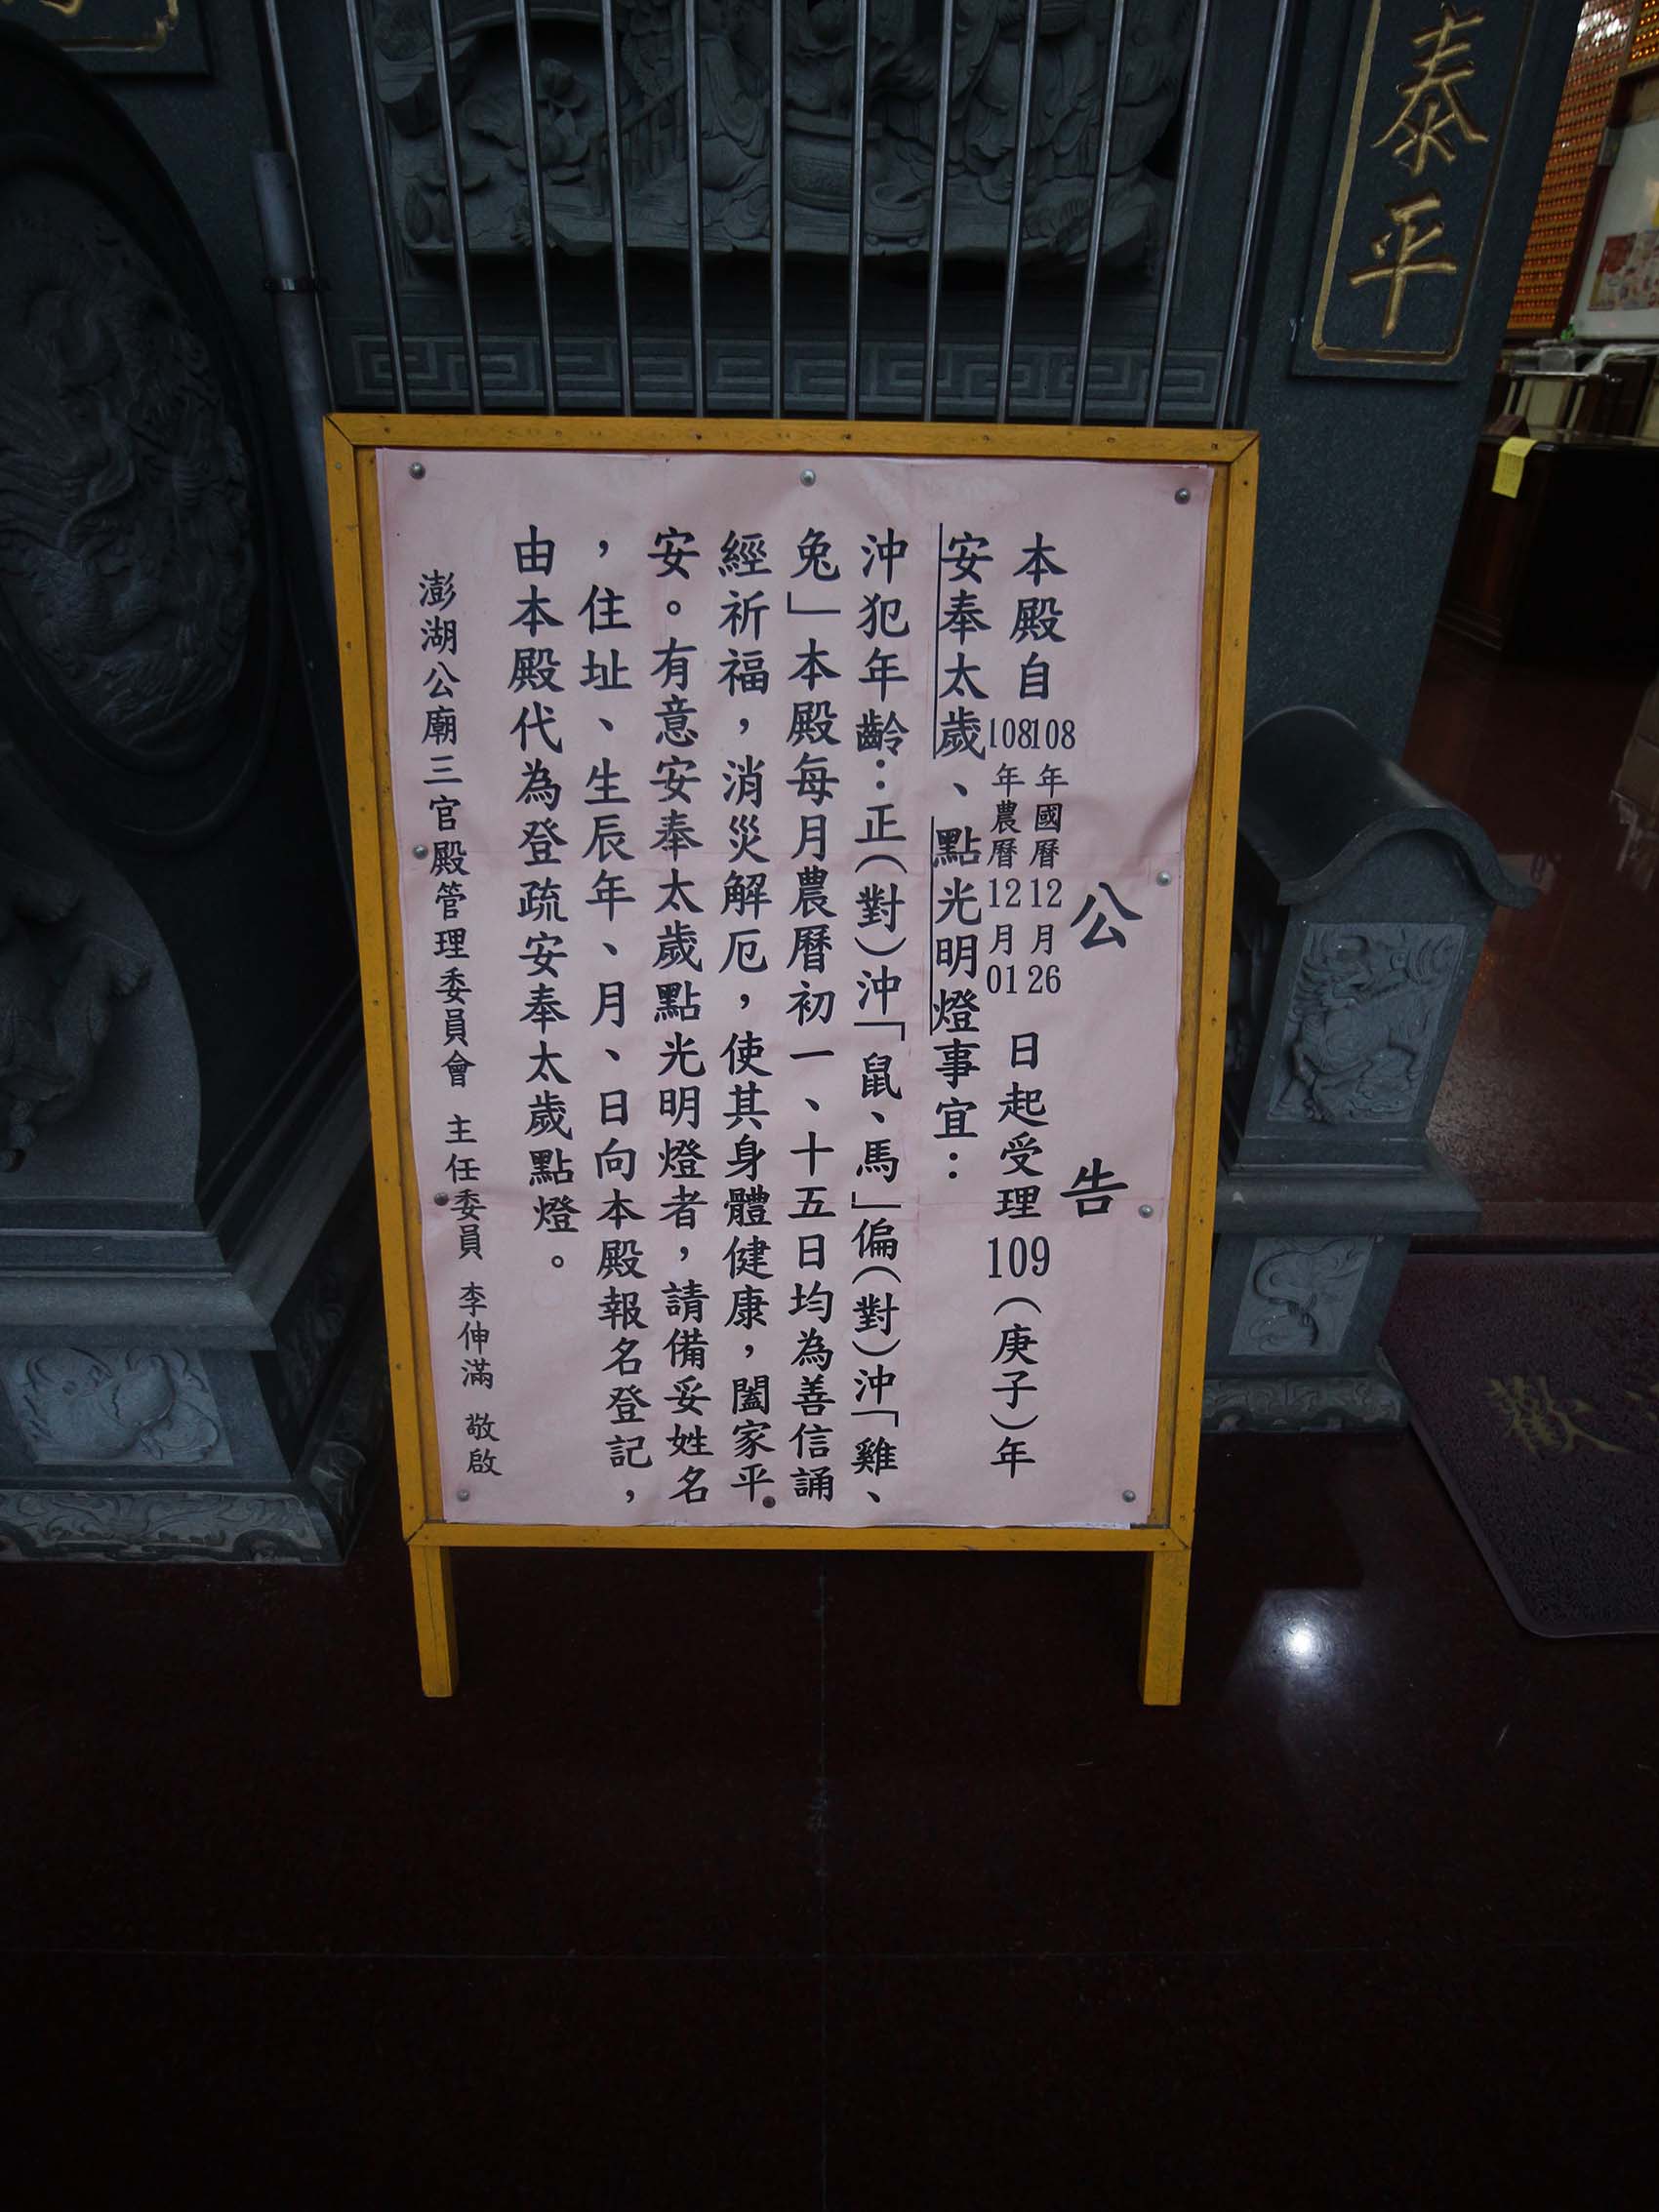 公告
本殿自108年國曆12月26
108年農曆12月01
日起受理109（庚子）年
安奉太歲、點光明燈事宜：
沖犯年齡：正（對）沖「鼠、馬」偏（對）沖「雞、
兔」本殿每月農曆初一、十五日均為善信誦
經祈福，消災解厄，使其身體健康，闔家平
安。有意安奉太歲點光明燈者，請備妥姓名
，住址、生辰年、月、日向本殿報名登記，
由本殿代為登疏安奉太歲點燈。
澎湖公廟三官殿管理委員會 主任委員 李伸滿 敬啟
泰平
歡